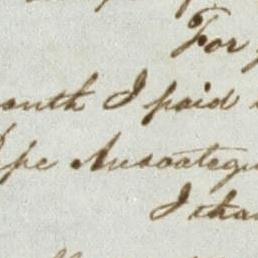 For
onth I paid
pe Ansoategu
I than